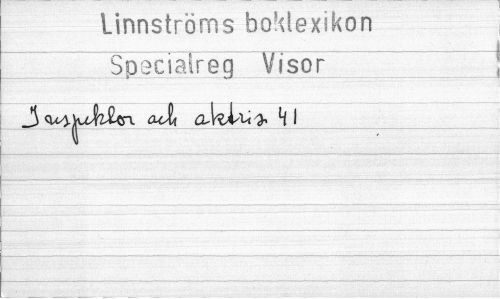 Linnströms boklexikon
Specialreg Visor
Inspektor och aktris 41